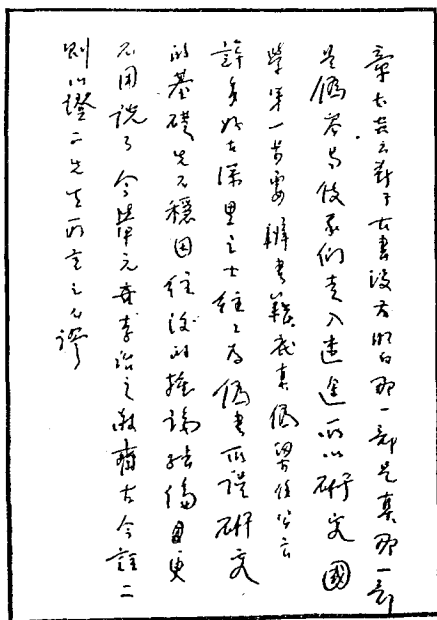 章太炎云對于古書沒有明白那一部是真那一部
是偽容易使我們走入迷途所以研究國
學第一步要辨書籍底真偽梁任公云
許多好古深思之士往々為偽書所誤研究
的基礎先不穩固往後的推論結論自更
不用說了今舉元李治之敬齋古今註二
則以證二先生所言之不謬